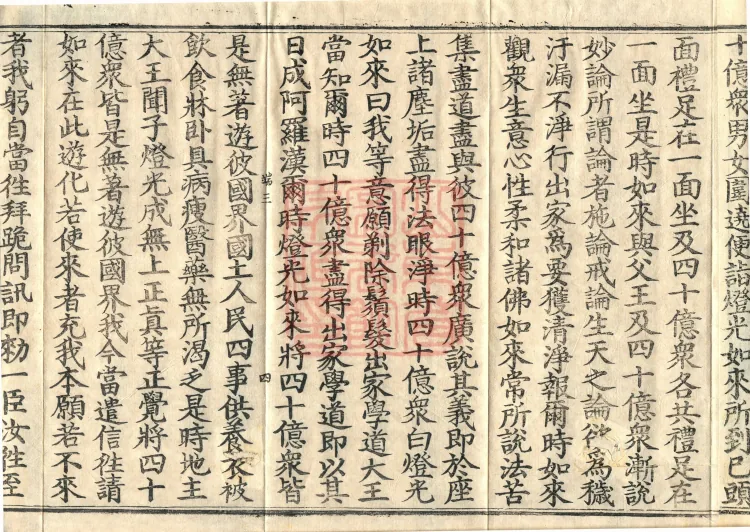 十億衆男女圍遶便詣燈光如來所到已頭
面禮足在一面坐及四十億衆各共禮足在
一面坐是時如來與父王及四十億衆漸說
妙論所謂論者施論戒論生天之論欲爲穢
汙漏不淨行出家爲要獲清淨報爾時如來
觀衆生意心性柔和諸佛如來常所說法苦
集盡道盡與彼四十億衆廣說其義即於座
上諸塵垢盡得法眼淨時四十億衆白燈光
如來曰我等意願剃除鬚髮出家學道大王
當知爾時四十億衆盡得出家學道即以其
日成阿羅漢爾時燈光如來將四十億衆皆
端三 四
是無著遊彼國界國土人民四事供養衣被
飲食牀卧具病瘦醫藥無所渴乏是時地主
大王聞子燈光成無上正眞等正覺將四十
億衆皆是無著遊彼國界我今當遣信往請
如來在此遊化若使來者充我本願若不來
者我躬自當往拜跪問訊即勑一臣汝往至